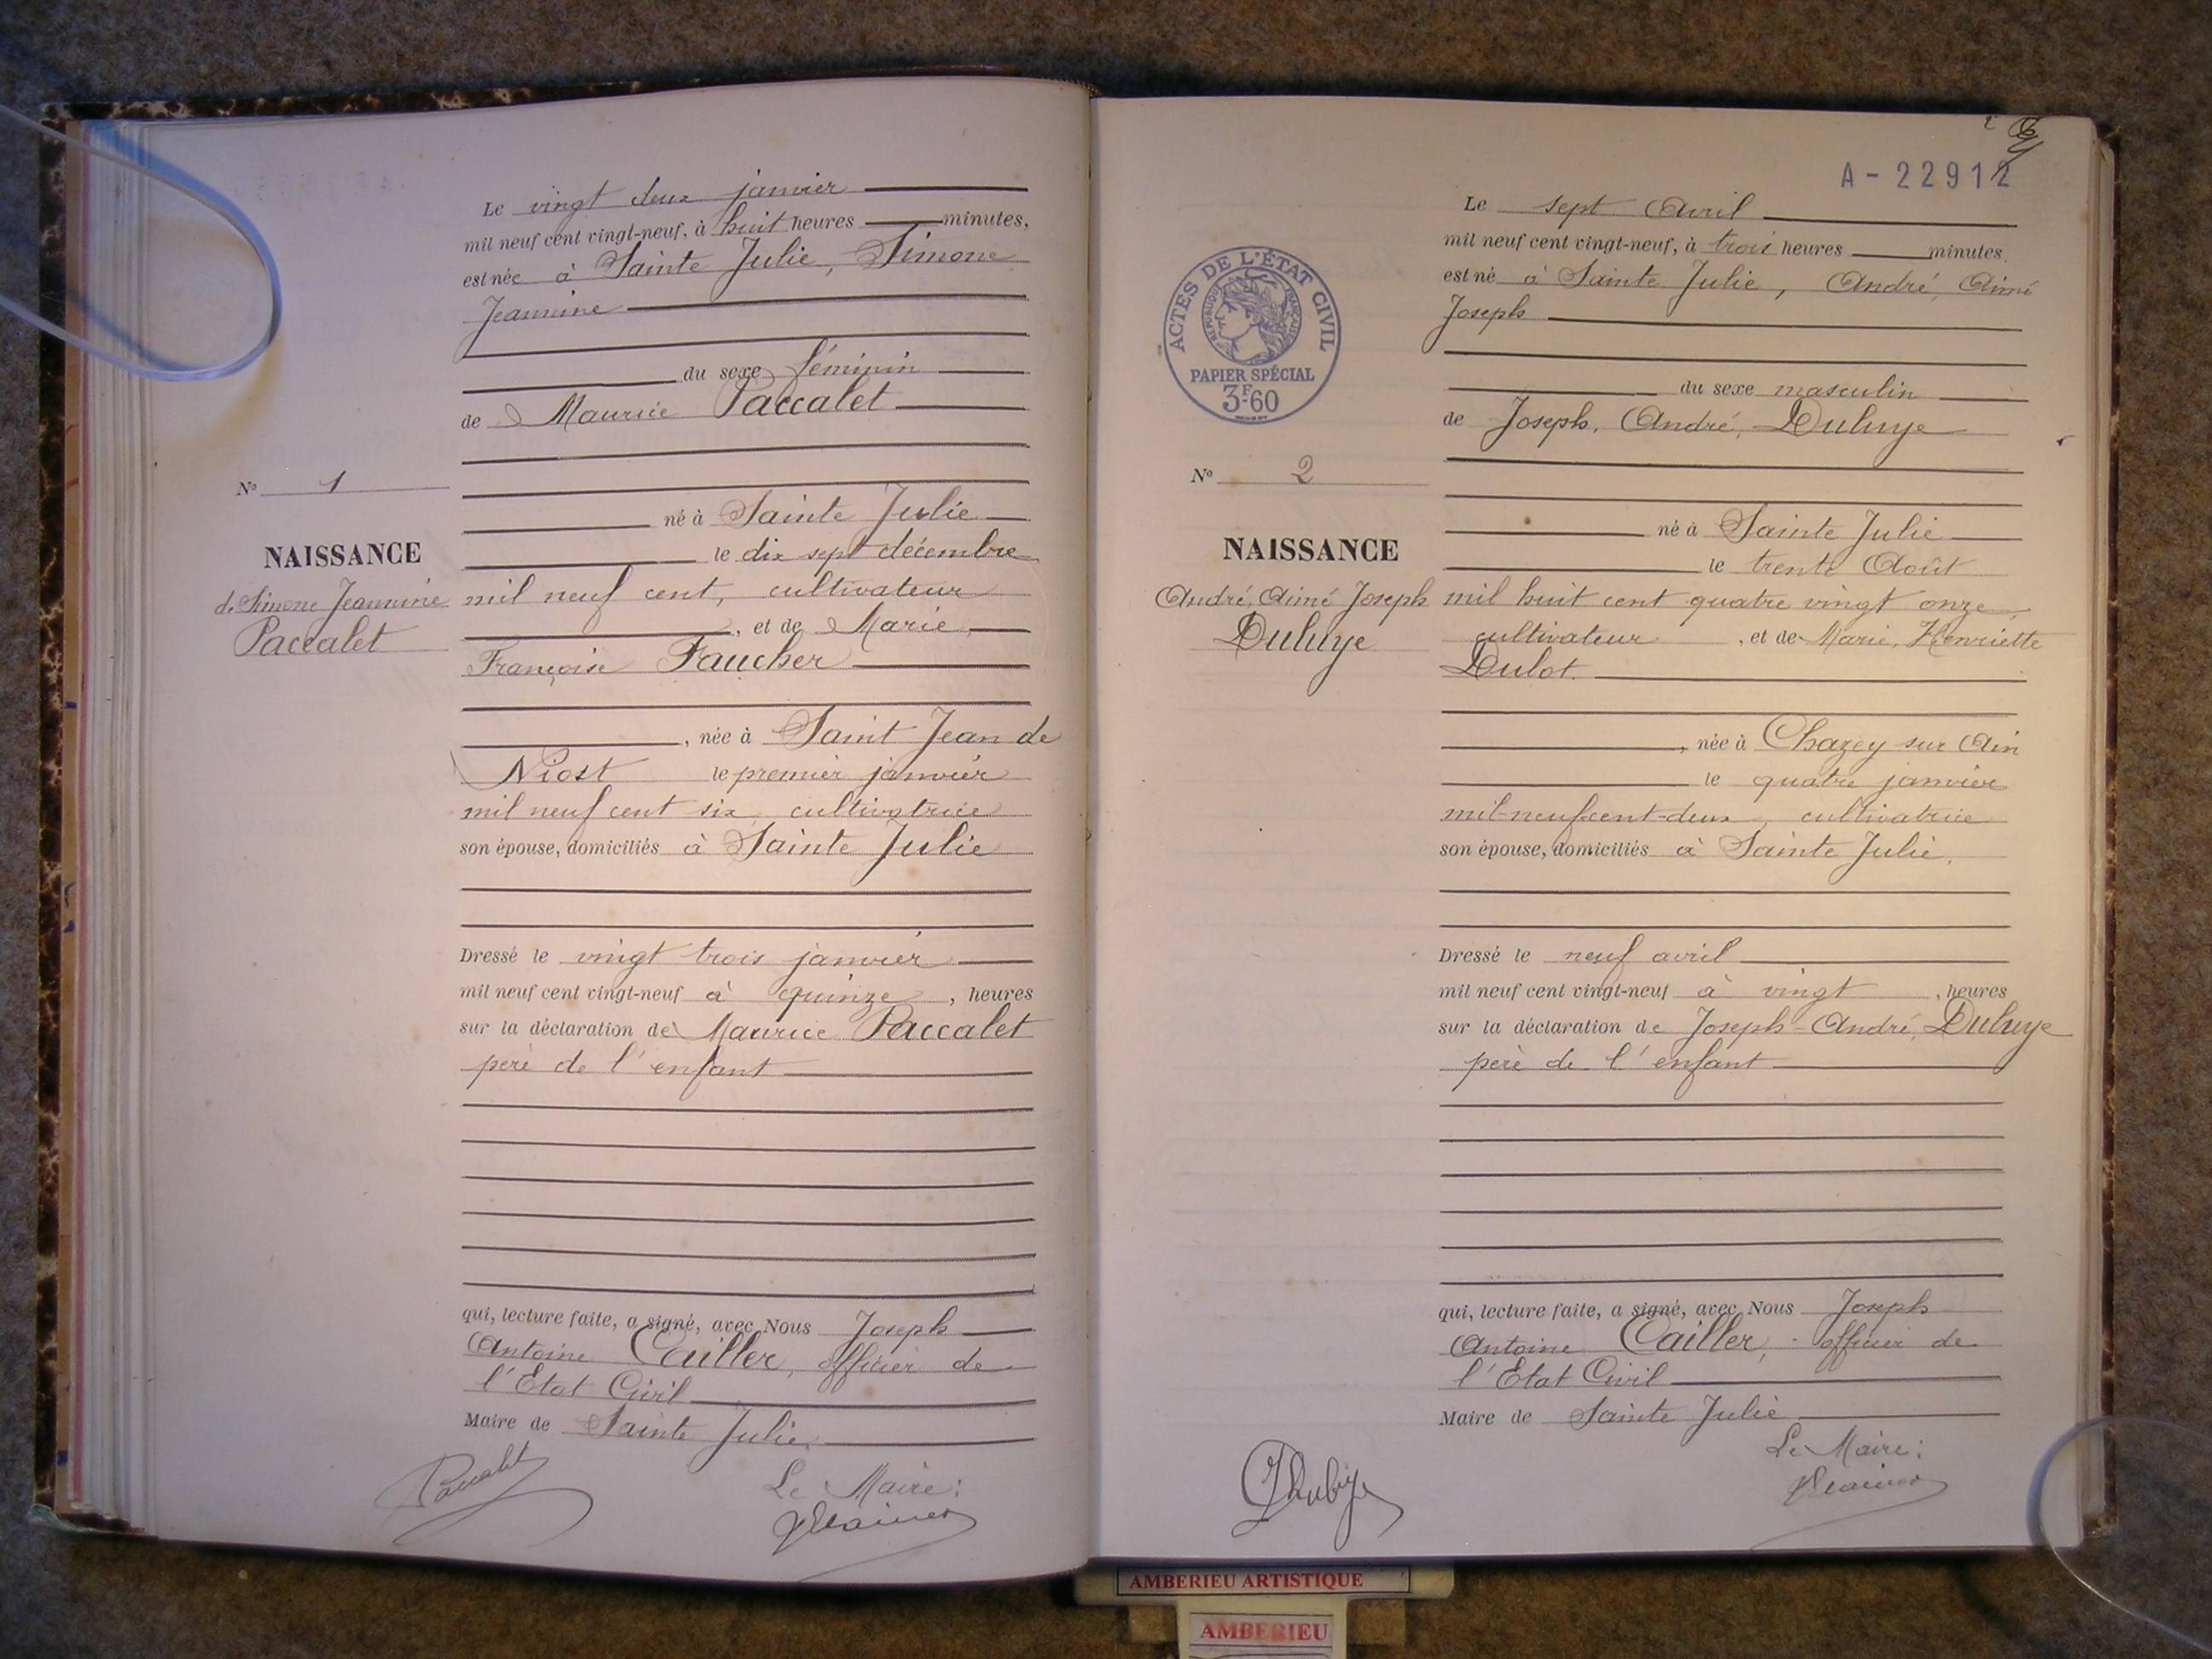 Le vingt deux janvier
mil neuf cent vingt-neuf, à huit heures minutes,
est née à Sainte Julie, Simone
Jeannine
du sexe féminin
de Maurice Paccalet
né à Sainte Julie
le dix sept décembre
mil neuf cent, cultivateur
, et de Marie,
Françoise Faucher
, née à Saint Jean de
Niost le premier janvier
mil neuf cent six, cultivatrice
son épouse, domiciliés à Sainte Julie
Dressé le vingt trois janvier
mil neuf cent vingt-neuf à quinze, heures
sur la déclaration de Maurice Paccalet
père de l'enfant
qui, lecture faite, a signé, avec Nous Joseph
Antoine Cailler, officier de
l'Etat Civil
Maire de Sainte Julie.
Paccalet
Le Maire:
No 1
NAISSANCE
de Simone Jeannine
Paccalet
A-22912
ACTES DE L'ÉTAT CIVIL
RÉPUBLIQUE FRANÇAISE
PAPIER SPÉCIAL
3F60
No 2
NAISSANCE
André, Aimé Joseph
Duluye
Le sept Avril
mil neuf cent vingt-neuf, à trois heures minutes.
est né à Sainte Julie, André, Aimé
Joseph
du sexe masculin
de Joseph, André, Duluye
né à Sainte Julie
le trente Août
mil huit cent quatre vingt onze
cultivateur, et de Marie, Henriette
Dulot.
, née à Chazey sur Ain
le quatre janvier
mil-neuf-cent-deux, cultivatrice
son épouse, domiciliés à Sainte Julie.
Dressé le neuf avril
mil neuf cent vingt-neuf à vingt, heures
sur la déclaration de Joseph-André, Duluye
père de l'enfant
qui, lecture faite, a signé, avec Nous Joseph
Antoine Cailler, officier de
l'Etat Civil
Maire de Sainte Julie
Le Maire:
AMBERIEU ARTISTIQUE
AMBERIEU